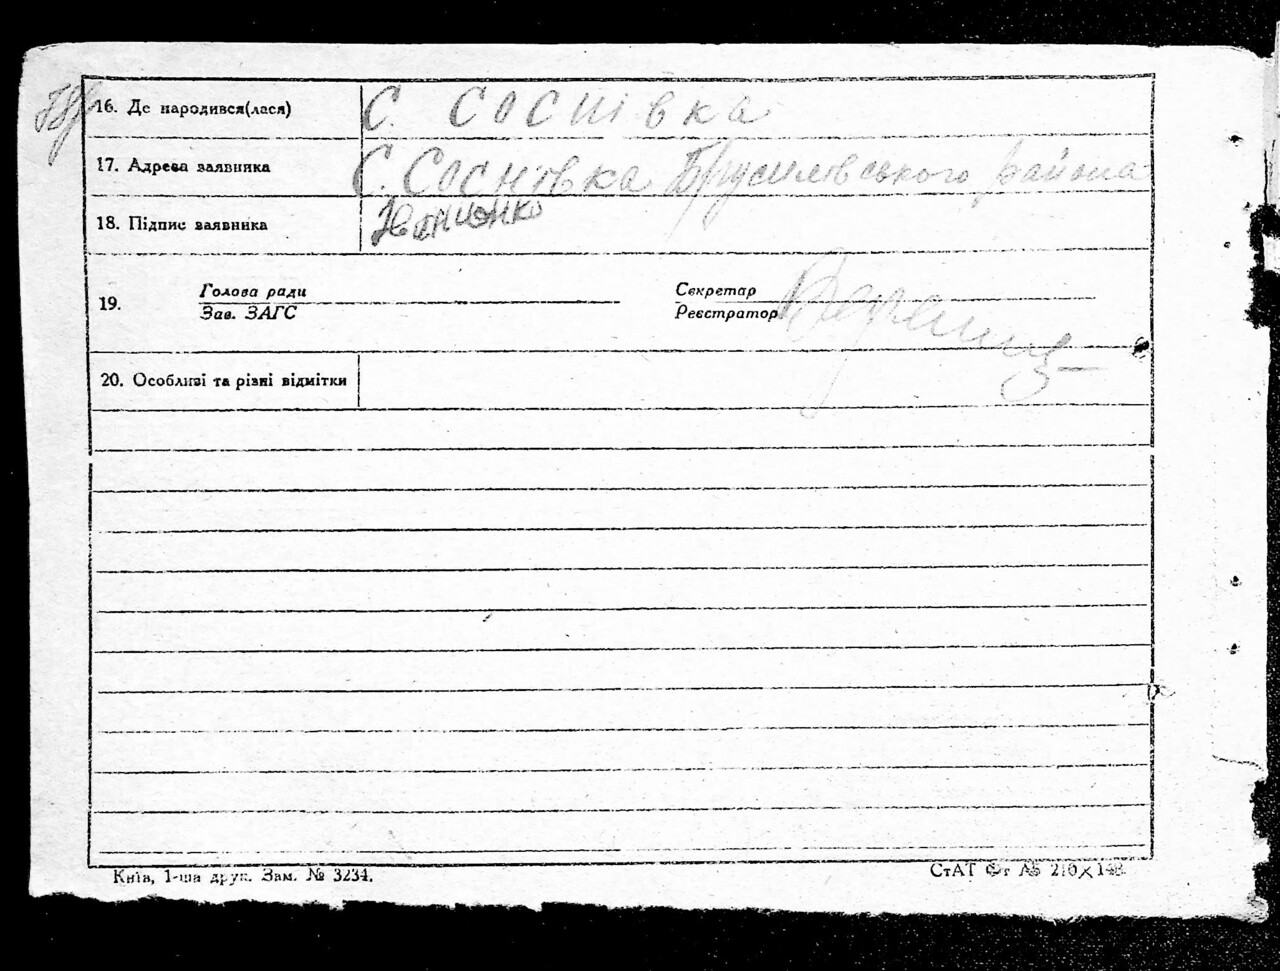 16. Де народився(лася) С. Соснівка
17. Адреса заявника С. Соснівка Брусилівського района
18. Підпис заявника Іваниенко
19. Голова ради Секретар
Зав. ЗАГС Реєстратор
20. Особливі та різні відмітки
Київ, 1-ша друк. Зам. № 3234. СтАТ Фт А5 210×148.